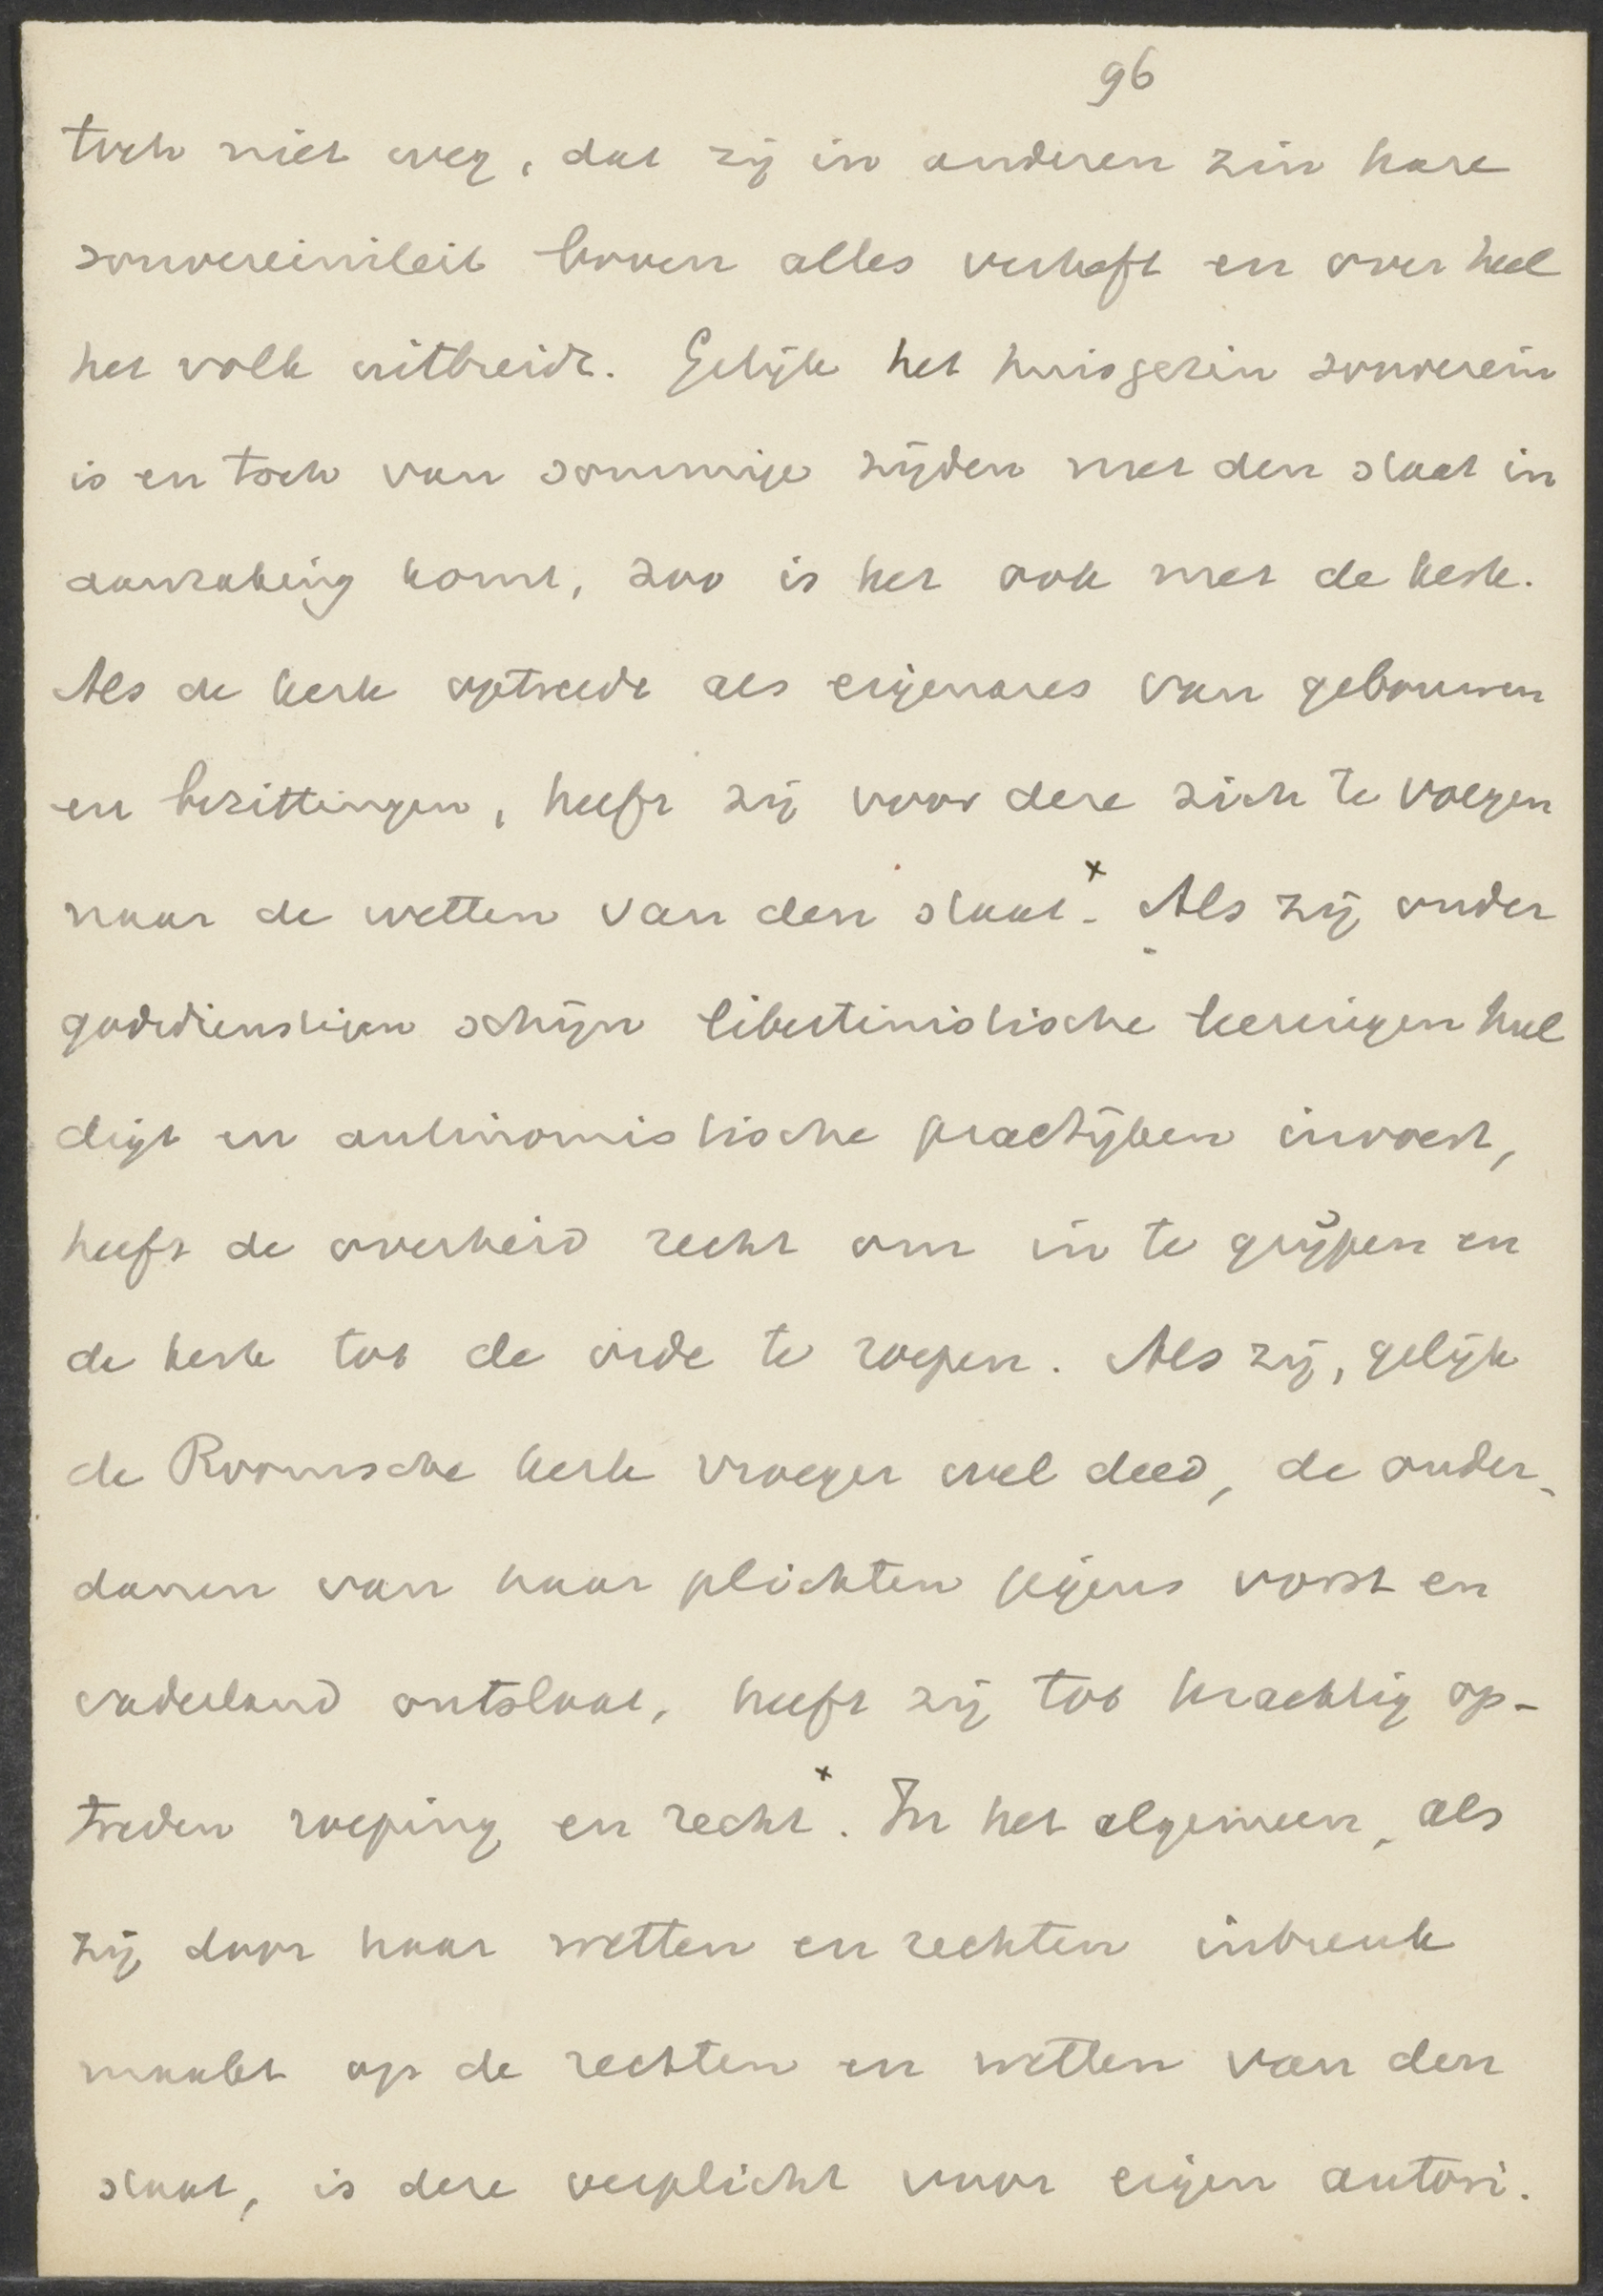 96
toch niet weg, dat zij in anderen zin hare
souvereiniteit boven alles verheft en over heel
het volk uitbreidt. Gelijk het huisgezin souverein
is en toch van sommige zijden met den staat in
aanraking komt, zoo is het ook met de kerk.
Als de kerk optreedt als eigenares van gebouwen
en bezittingen, heeft zij voor deze zich te voegen
naar de wetten van den staat x. Als zij onder
godsdienstigen schijn libertinistische leeringen hul
digt en antinomistische practijken invoert,
heeft de overheid recht om in te grijpen en
de kerk tot de orde te roepen. Als zij, gelijk
de Roomsche kerk vroeger wel deed, de onder-
danen van haar plichten jegens vorst en
vaderland ontslaat, heeft zij tot krachtig op-
treden roeping en recht x. In het algemeen, als
zij door haar wetten en rechten inbreuk
maakt op de rechten en wetten van den
staat, is deze verplicht voor eigen autori-